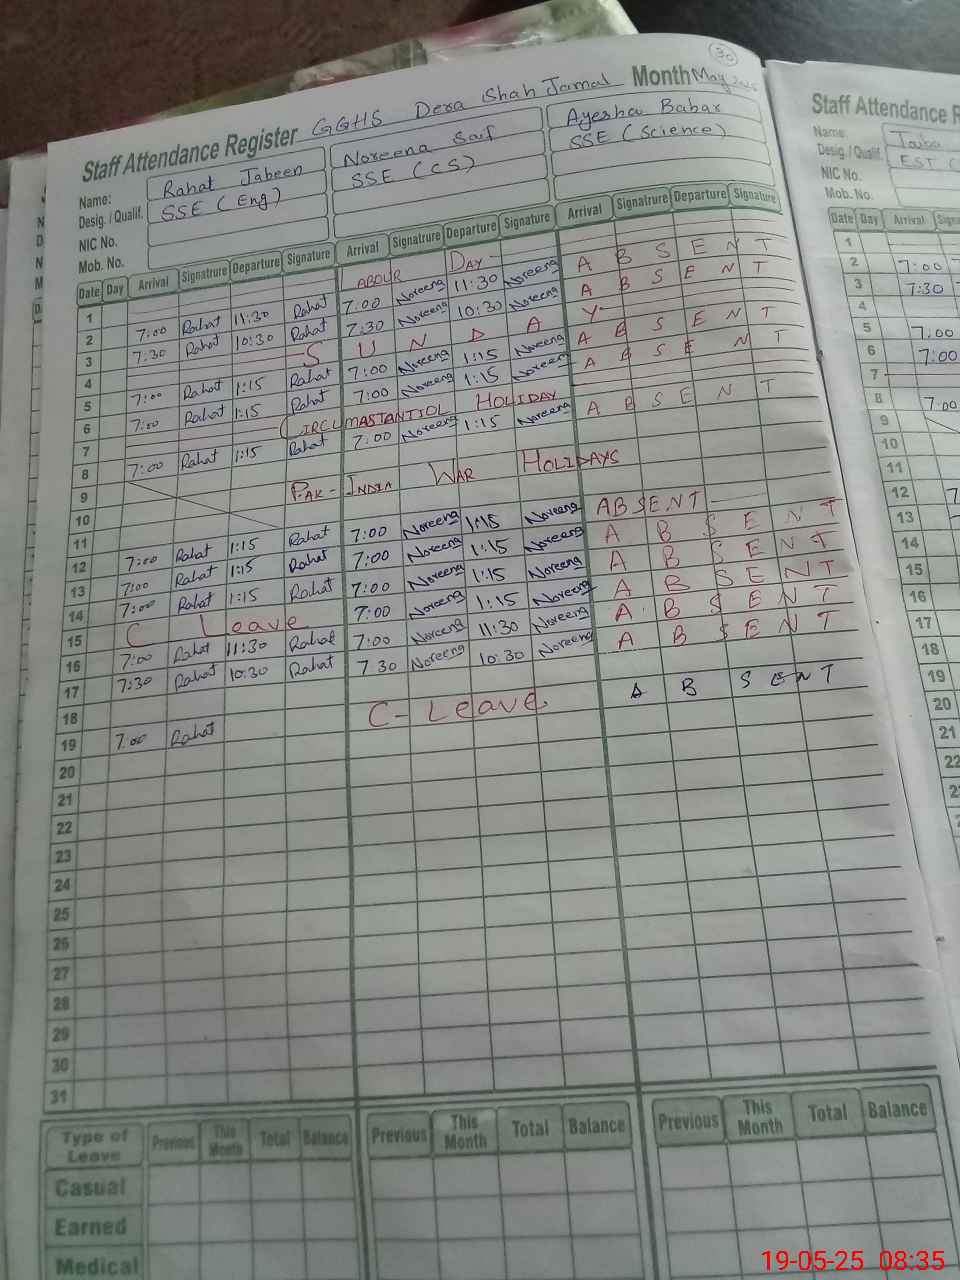 30
Staff Attendance Register GGHS Dera Shah Jamal Month May 2025
Name: Rahat Jabeen Noreena Saif Ayesha Babar
Desig. / Qualif. SSE (Eng) SSE (CS) SSE (Science)
NIC No.
Mob. No.
Date Day Arrival Signatrure Departure Signature Arrival Signatrure Departure Signature Arrival Signatrure Departure Signature
1 LABOUR DAY
2 7:00 Rahat 11:30 Rahat 7:00 Noreena 11:30 Noreena ABSENT
3 7:30 Rahat 10:30 Rahat 7:30 Noreena 10:30 Noreena ABSENT
4 SUNDAY
5 7:00 Rahat 1:15 Rahat 7:00 Noreena 1:15 Noreena ABSENT
6 7:00 Rahat 1:15 Rahat 7:00 Noreena 1:15 Noreena ABSENT
7 CIRCUMASTANTIOL HOLIDAY
8 7:00 Rahat 1:15 Rahat 7:00 Noreena 1:15 Noreena ABSENT
9
10 PAK-INDIA WAR HOLIDAYS
11
12 7:00 Rahat 1:15 Rahat 7:00 Noreena 1:15 Noreena ABSENT
13 7:00 Rahat 1:15 Rahat 7:00 Noreena 1:15 Noreena ABSENT
14 7:00 Rahat 1:15 Rahat 7:00 Noreena 1:15 Noreena ABSENT
15 C Leave 7:00 Noreena 1:15 Noreena ABSENT
16 7:00 Rahat 11:30 Rahat 7:00 Noreena 11:30 Noreena ABSENT
17 7:30 Rahat 10:30 Rahat 7 30 Noreena 10:30 Noreena ABSENT
18
19 7:00 Rahat C-Leave. ABSENT
20
21
22
23
24
25
26
27
28
29
30
31
Type of Leave Previous This Month Total Balance Previous This Month Total Balance Previous This Month Total Balance
Casual
Earned
Medical
Staff Attendance R
Name:
Desig. / Qualif. EST
NIC No.
Mob. No.
Date Day Arrival
1
2 7:00
3 7:30
4
5 7:00
6 7:00
7
8 7:00
9
10
11
12
13
14
15
16
17
18
19
20
21
22
19-05-25 08:35